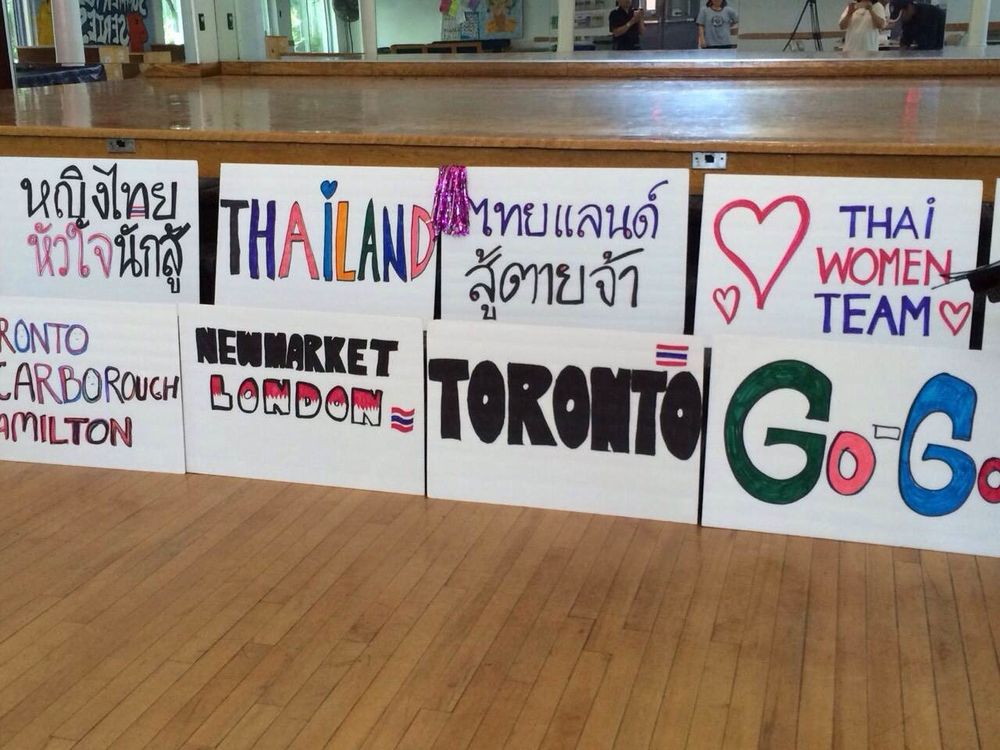 หญิงไทย
หัวใจนักสู้
THAiLAND
ไทยแลนด์
สู้ตายจ้า
THAi
WOMEN
TEAM
RONTO
CARBOROUGH
AMILTON
NEWMARKET
LONDON
TORONTO
Go-Go